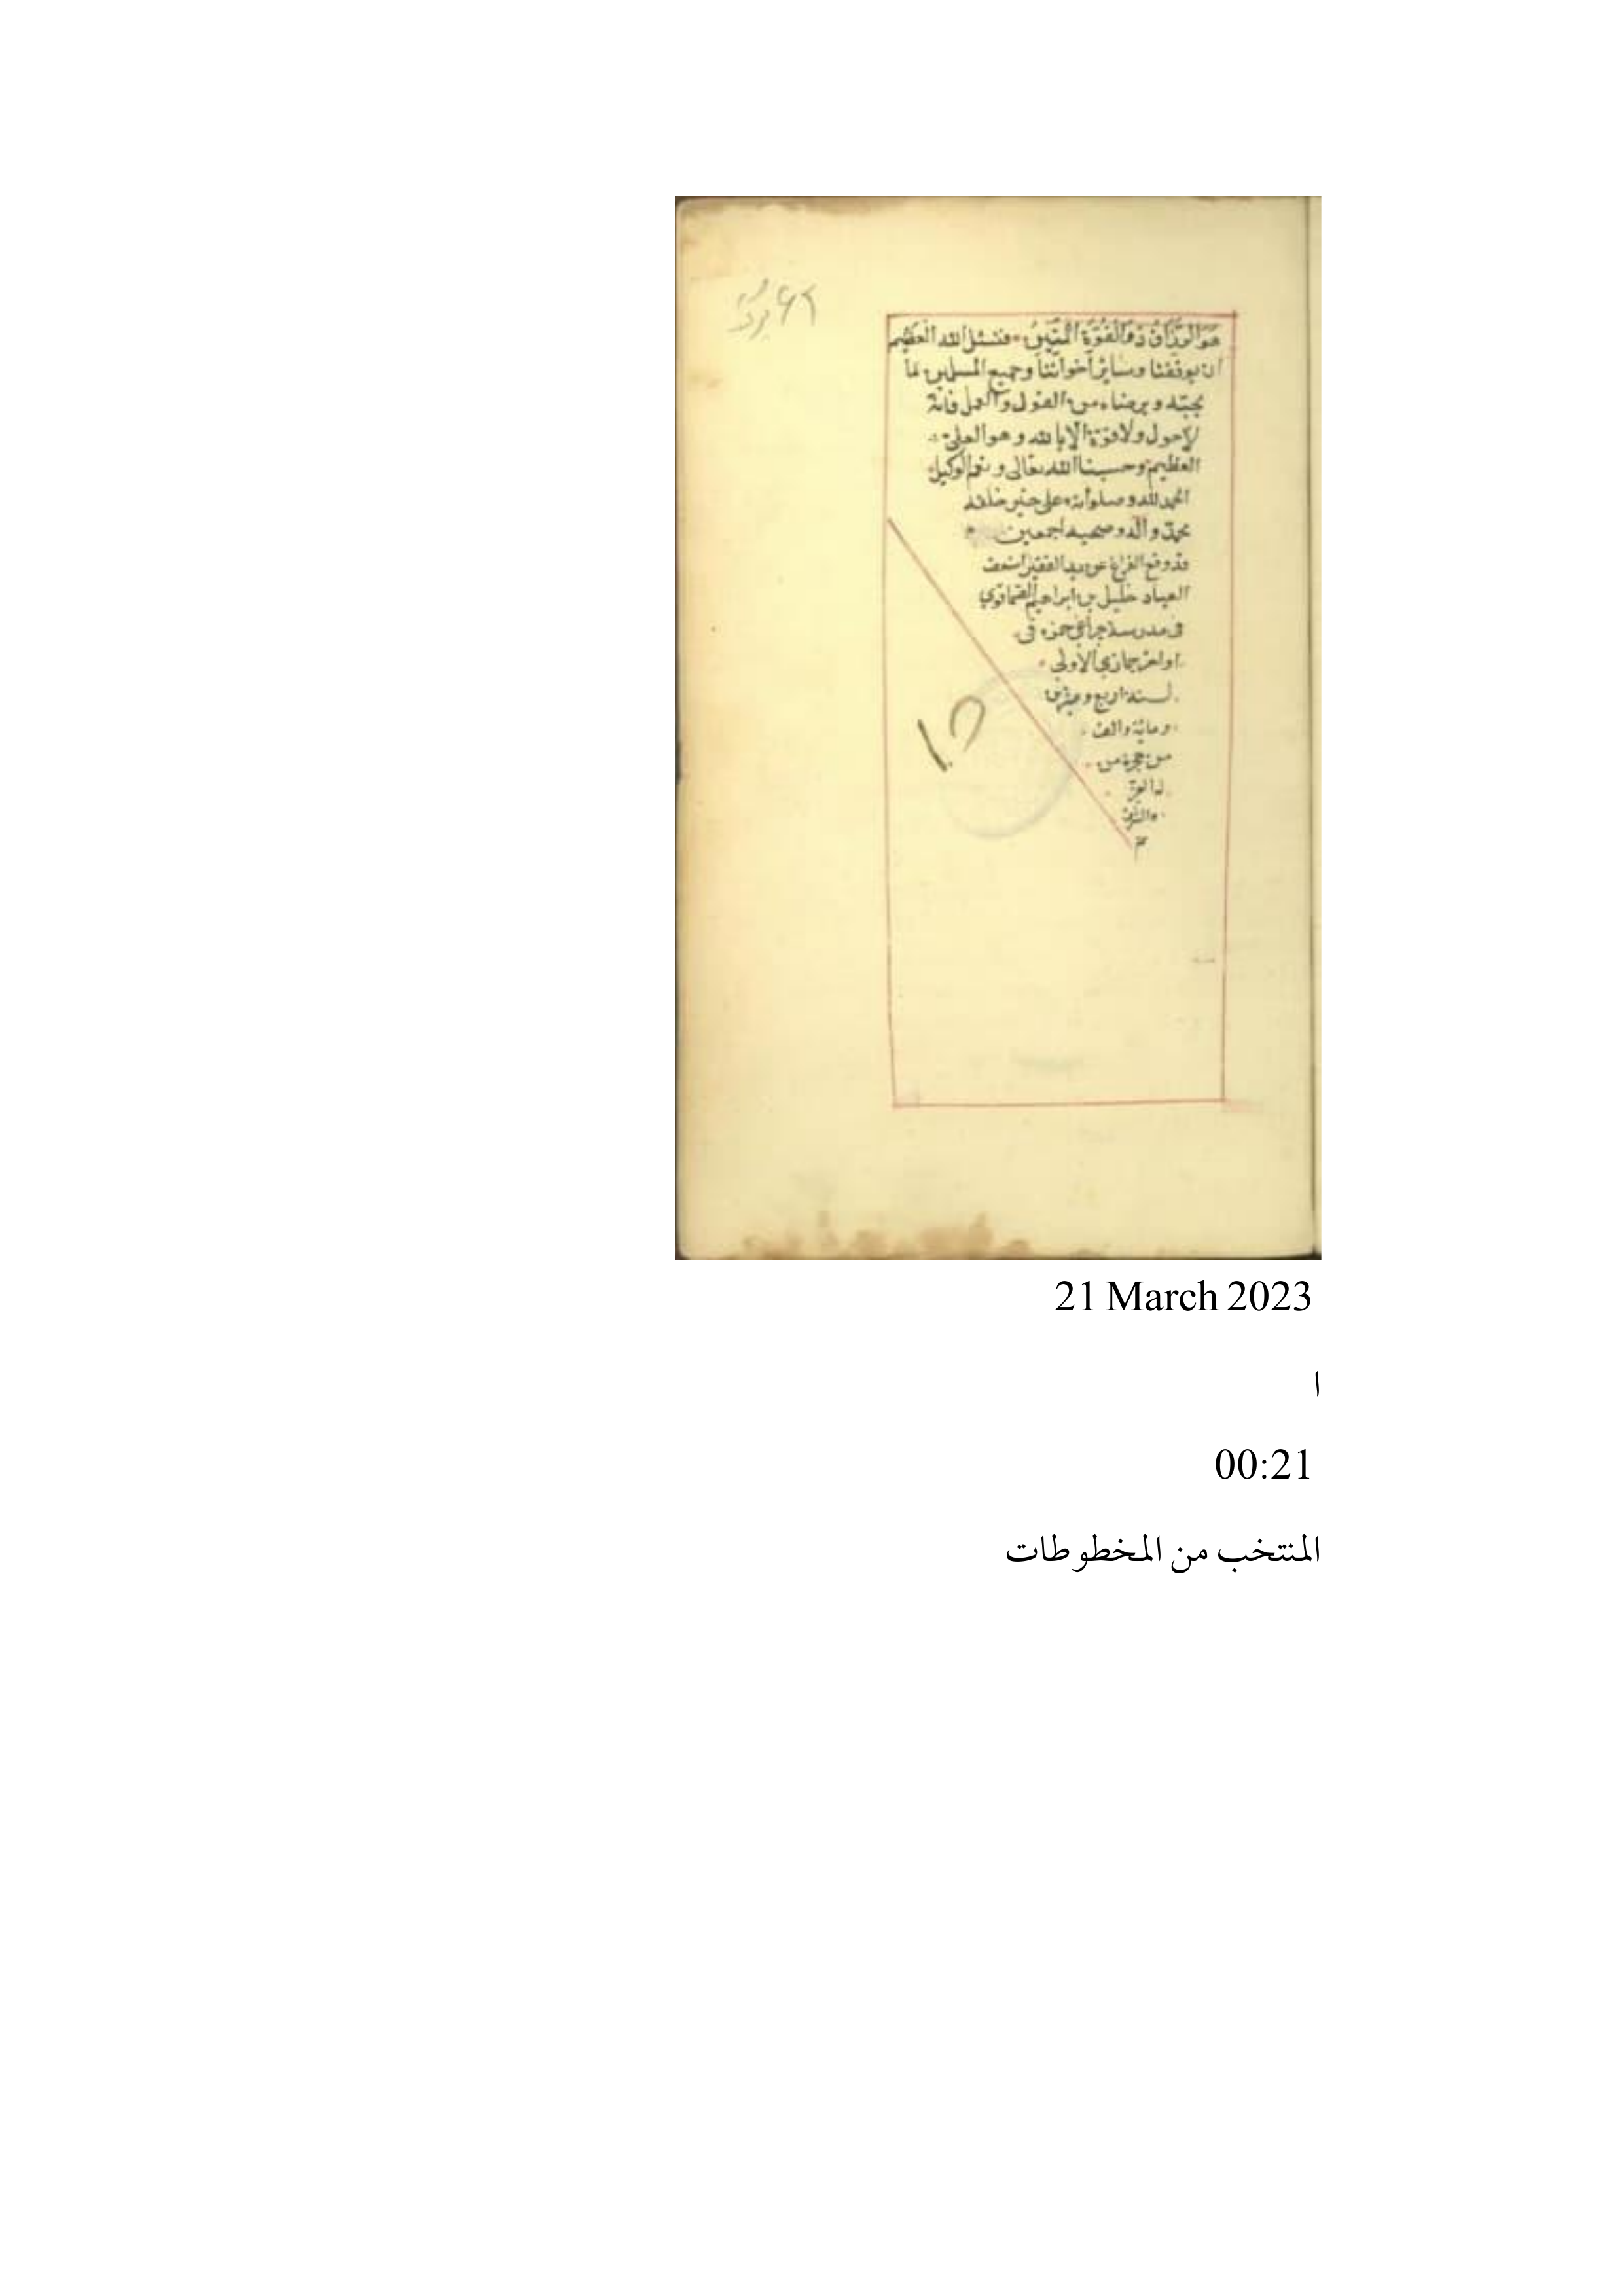 هُوَ الرَّزَّاقُ ذُو الْقُوَّةِ الْمَتِينُ فنسئل الله العظيم
ان يوفقنا وسائر اخواننا وجميع المسلمين لما
يحبّه ويرضاه من القول والعمل فانه
لاحول ولا قوة الا بالله وهو العلي
العظيم وحسبنا الله تعالى ونعم الوكيل
الحمد لله وصلواته على خير خلقه
محمد واله وصحبه اجمعين
قد وقع الفراغ عن يد الفقير اضعف
العباد خليل بن ابراهيم
في مدرسة حمزه في
اواخر جمازي الاولي
لسنه اربع وعشرين
ومائة والف
من هجرة من
له العز
والشرف
تم
٦٢
21 March 2023
ا
00:21
المنتخب من المخطوطات